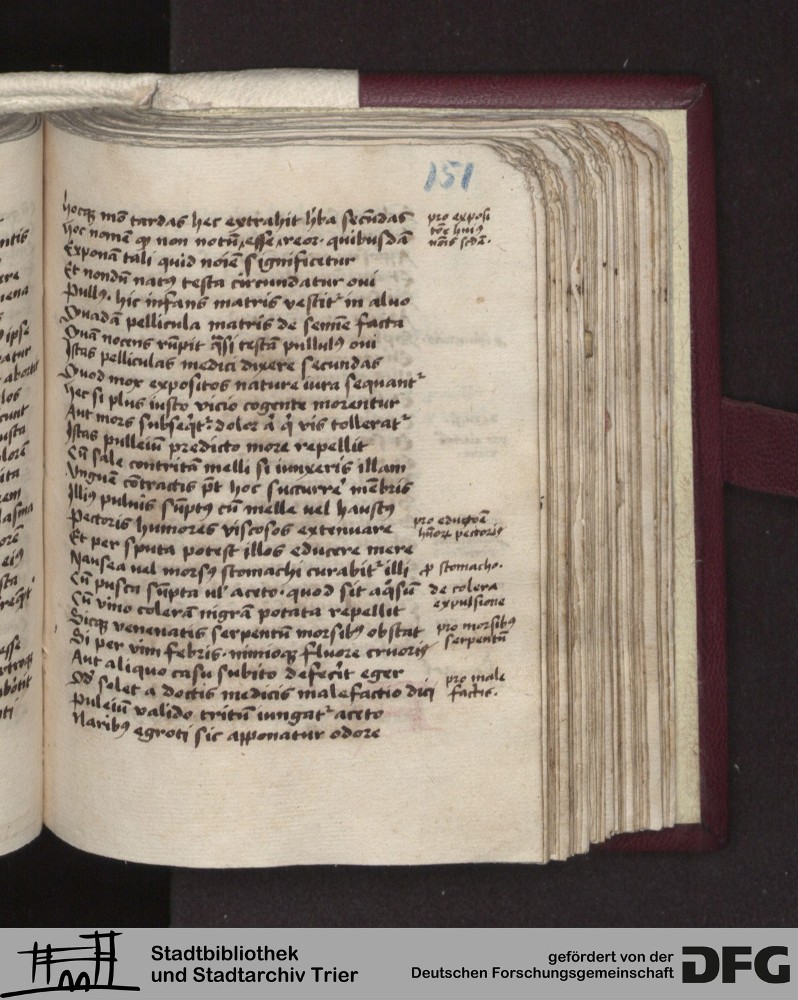 151
hocq; mō tardas hec extrahit h'ba secūdas
hoc nomē qꝫ non notū esse reor · quibusdā
Exponā tali quid noīe significetur
Et nondū natꝰ testa circundatur oui
Pullꝰ · hic infans matris vestitᷣ in aluo
Quadā pellicula matris de semīe facta
Quā nocens rūpit q̄si testā pullulꝰ oui
Istas pelliculas medici dixere secundas
Quod mox expositos nature iura sequantᷣ
Hec si plus iusto vicio cogente morentur
Aut mors subseq̇tᷣ dolor a q̇ vis tolleratᷣ
Istas pulleiū predicto more repellit
Cū sale contritā melli si iunxeris illam
Unguē cōtractis p̄t hoc succurrē mēbris
Illiꝰ puluis sūptꝰ cū melle uel haustꝰ
Pectoris humores viscosos extenuare
Et per sputa potest illos educere mere
Nausea uel morsꝰ stomachi curabitᷣ illi
Cū pusca sūpta ul' aceto · quod sit aq̄sū
Cū vino colerā nigrā potata repellit
Sicq; venenatis serpentū morsibꝰ obstat
Si per vim febris · nimioq; fluore cruoris
Aut aliquo casu subito defecīt eger
Qd̄ solet a doctis medicis malefactio dici
Puleiū valido tritū iungatᷣ aceto
Naribꝰ egroti sic apponatur odore
pro exposi
tōe huiꝰ
pro eductōe
hūoꝝ pectoris
ꝓ stomacho ·
de colera
expulsione
pro morsibꝰ
serpentū
pro male
factis ·
ntis
ere
ipse
atur
los
cunt
usta
lorē
ita
rem
orē
eiꝰ
sta
esse
Stadtbibliothek
und Stadtarchiv Trier
gefördert von der
Deutschen Forschungsgemeinschaft
DFG